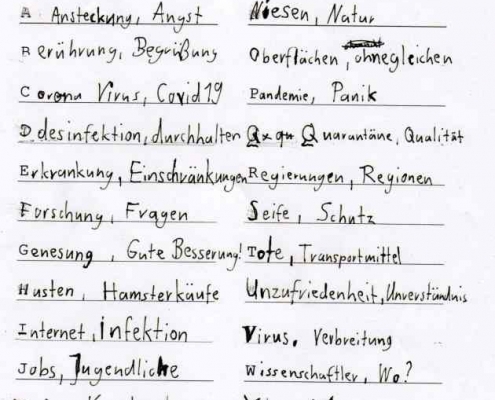 A Ansteckung, Angst
Berührung, Begrüßung
Corona Virus, Covid19
D desinfektion, durchhalten
Erkrankung, Einschränkungen
Forschung, Fragen
Genesung, Gute Besserung!
Husten, Hamsterkäufe
Internet, infektion
Jobs, Jugendliche
Niesen, Natur
Oberflächen, ohnegleichen
Pandemie, Panik
Quarantäne, Qualität
Regierungen, Regionen
Seife, Schutz
Tote, Transportmittel
Unzufriedenheit, Unverständnis
Virus, Verbreitung
Wissenschaftler, Wo?